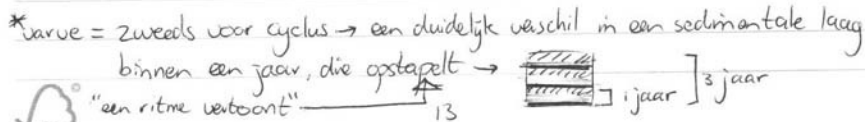 *varve = zweeds voor cyclus → een duidelijk verschil in een sedimentale laag
binnen een jaar, die opstapelt → 1 jaar ] 3 jaar
"een ritme vertoont" 13